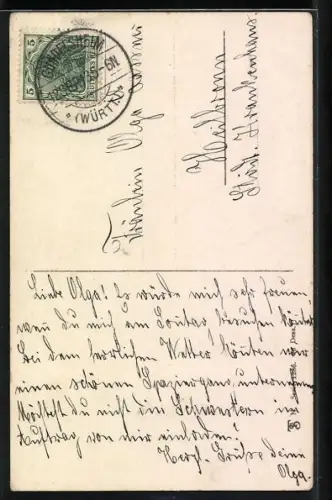 5
GUNDELSHEIM
(WÜRTT.)
Fräulein Olga
Heilbronn
Städt. Krankenhaus.
Liebe Olga! Es würde mich sehr freuen,
wenn du mich am Sontag besuchen könntest.
Bei dem herrlichen Wetter könten wir
einen schönen Spaziergang unternehmen.
Möchtest du nicht die Schwestern im
Auftrag von mir einladen?
Herzl. Grüße Deine
Olga.